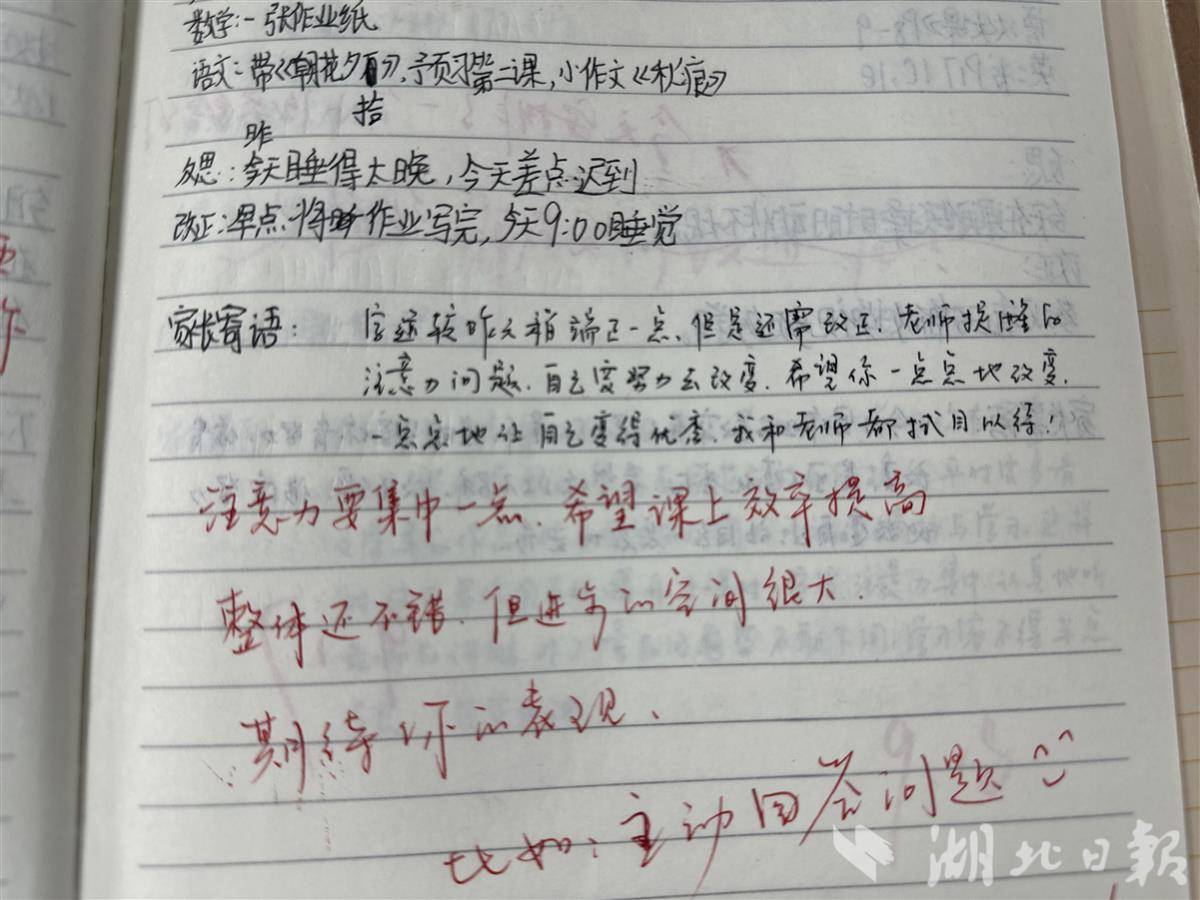 数学:一张作业纸
语文:带《朝花夕拾》,预习第二课,小作文《秋痕》
拾
昨
反思:今天睡得太晚,今天差点迟到
改正:早点将作业写完,今天9:00睡觉
家长寄语: 字迹较昨天稍端正一点,但是还需改正.老师提醒的
注意力问题.自己要努力去改变.希望你一点点地改变.
一点点地让自己变得优秀 我和老师都拭目以待!
注意力要集中一点.希望课上效率提高
整体还不错.但进步的空间很大.
期待你的表现.
比如:主动回答问题
湖北日报